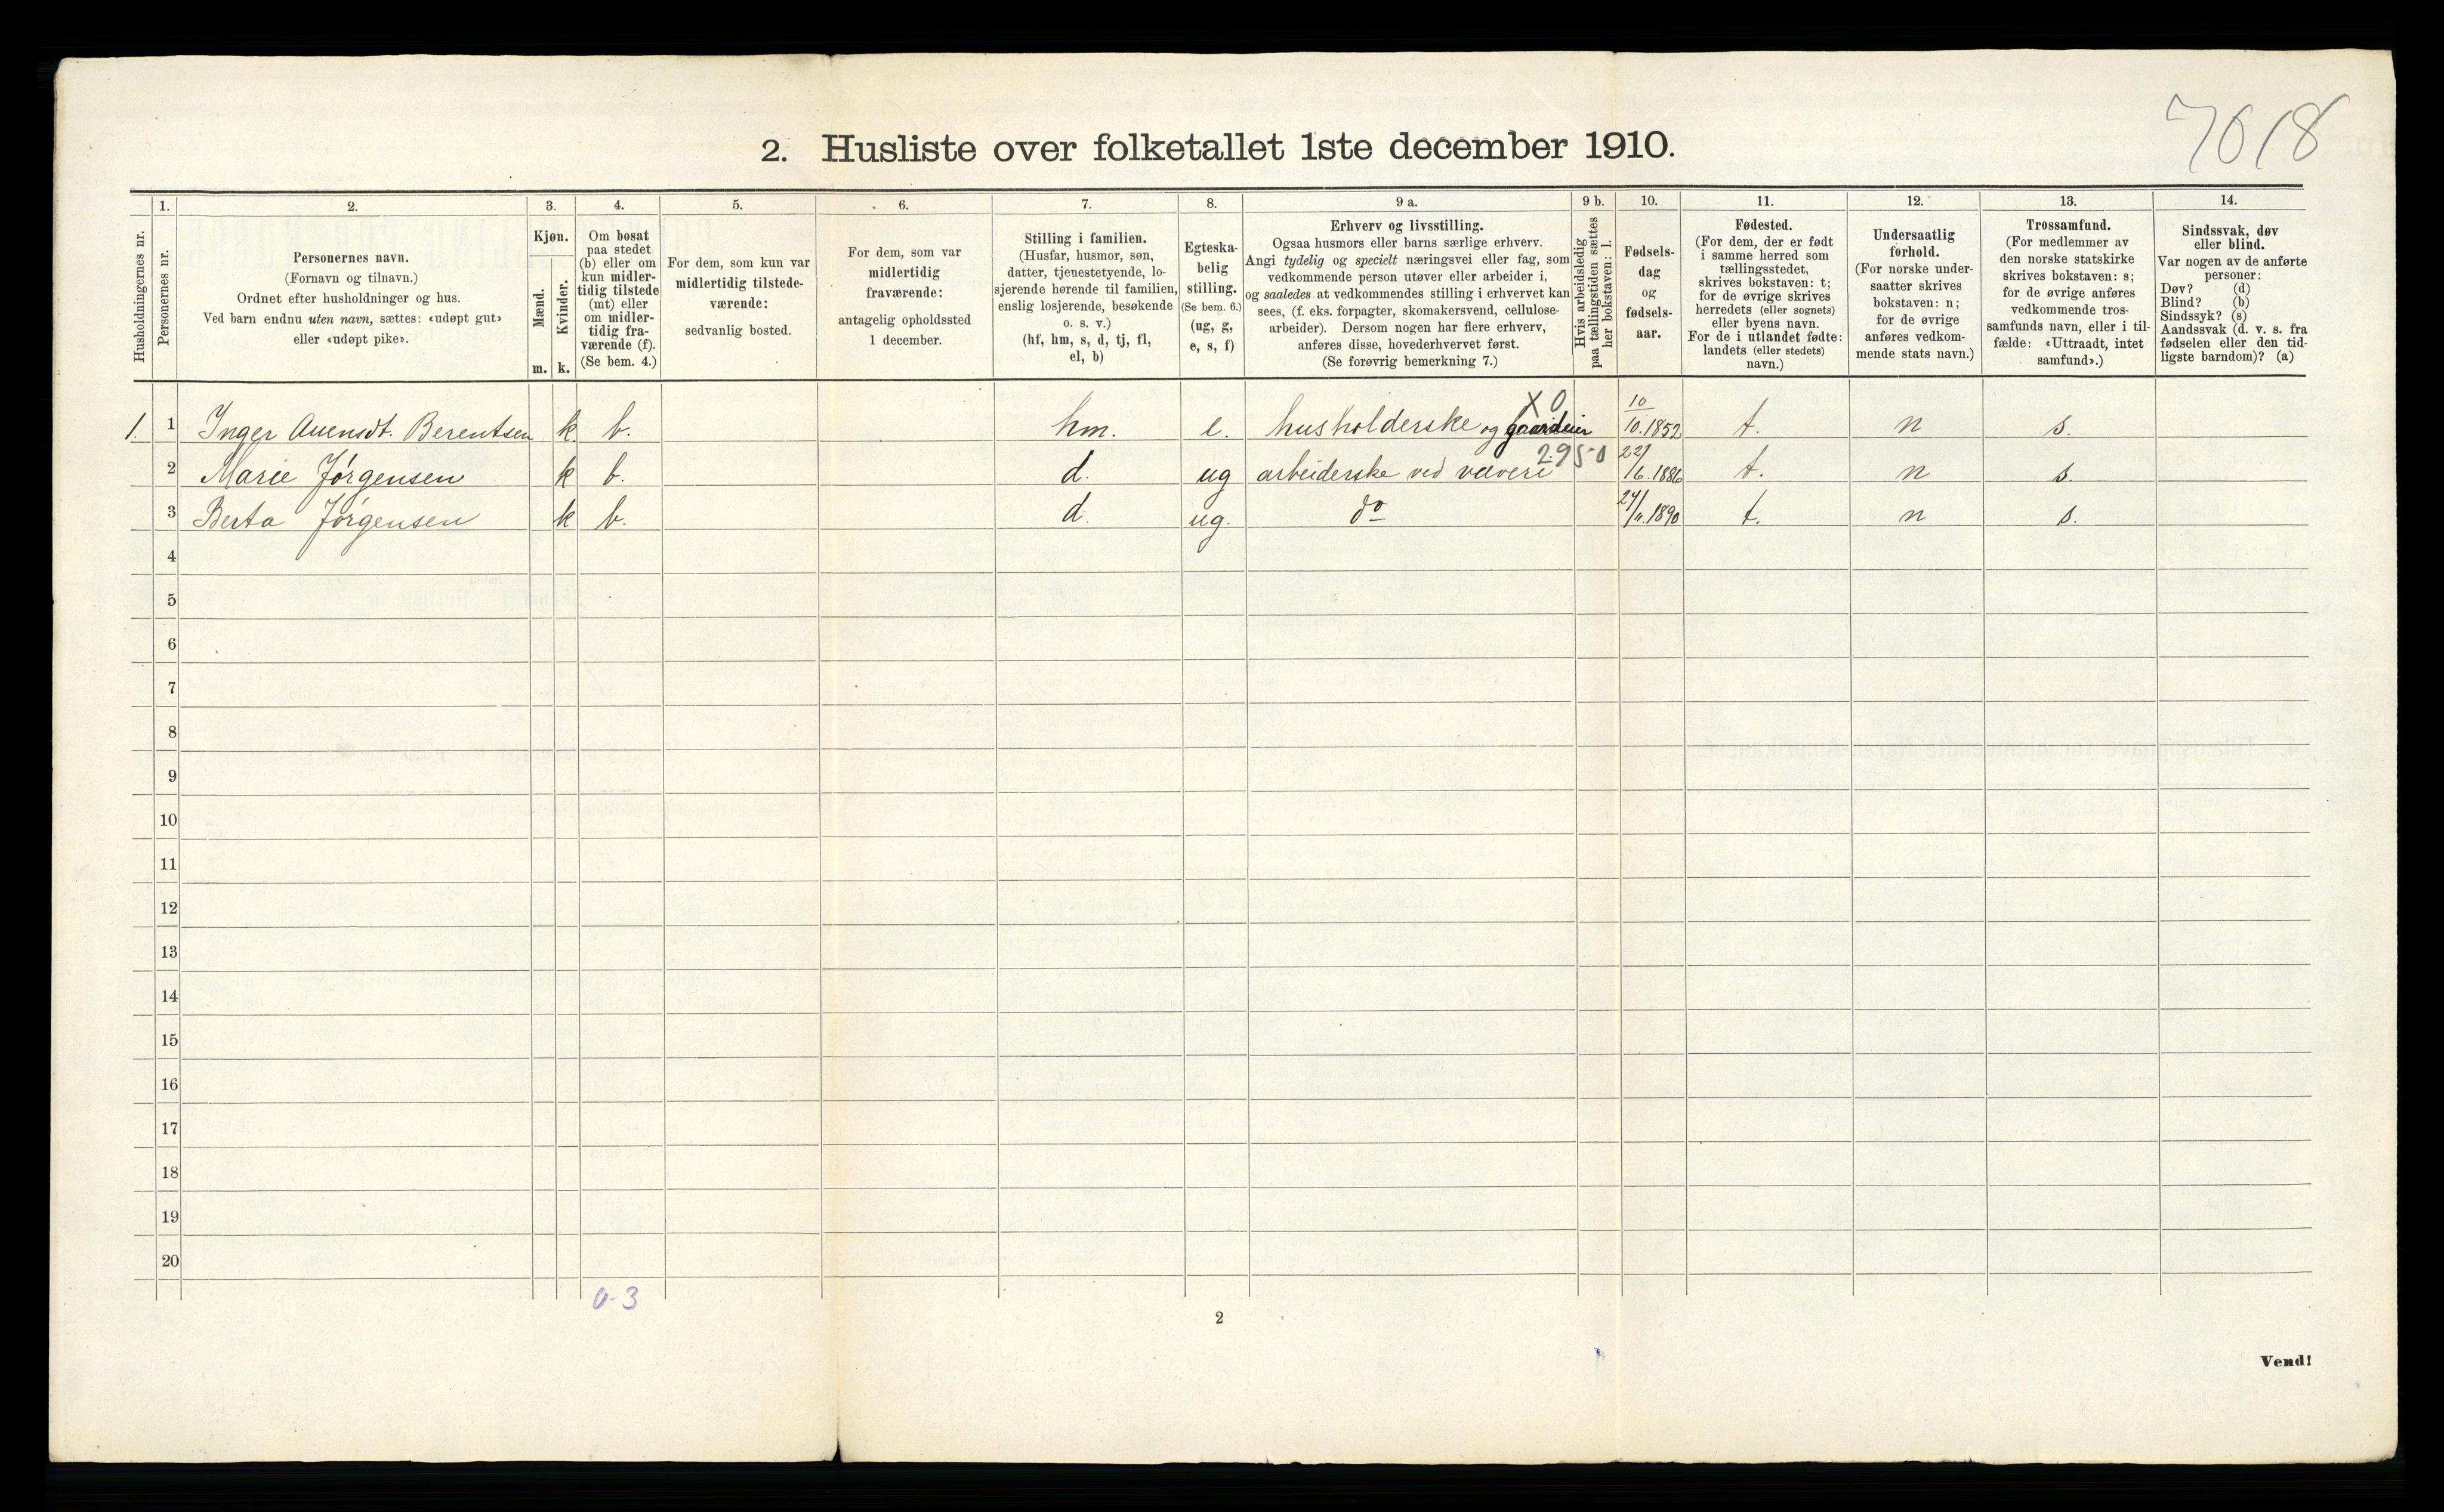 7018
2. Husliste over folketallet 1ste december 1910.
1. 2. 3. 4. 5. 6. 7. 8. 9 a. 9 b. 10. 11. 12. 13. 14.
Husholdningernes nr.
Personernes nr.
Personernes navn.
(Fornavn og tilnavn.)
Ordnet efter husholdninger og hus.
Ved barn endnu uten navn, sættes: «udøpt gut»
eller «udøpt pike».
Kjøn.
Mænd.
Kvinder.
m. k.
Om bosat
paa stedet
(b) eller om
kun midler-
tidig tilstede
(mt) eller
om midler-
tidig fra-
værende (f).
(Se bem. 4.)
For dem, som kun var
midlertidig tilstede-
værende:
sedvanlig bosted.
For dem, som var
midlertidig
fraværende:
antagelig opholdssted
1 december.
Stilling i familien.
(Husfar, husmor, søn,
datter, tjenestetyende, lo-
sjerende hørende til familien,
enslig losjerende, besøkende
o. s. v.)
(hf, hm, s, d, tj, fl,
el, b)
Egteska-
belig
stilling.
(Se bem. 6.)
(ug, g,
e, s, f)
Erhverv og livsstilling.
Ogsaa husmors eller barns særlige erhverv.
Angi tydelig og specielt næringsvei eller fag, som
vedkommende person utøver eller arbeider i,
og saaledes at vedkommendes stilling i erhvervet kan
sees, (f. eks. forpagter, skomakersvend, cellulose-
arbeider). Dersom nogen har flere erhverv,
anføres disse, hovederhvervet først.
(Se forøvrig bemerkning 7.)
Hvis arbeidsledig
paa tællingstiden sættes
her bokstaven: l.
Fødsels-
dag
og
fødsels-
aar.
Fødested.
(For dem, der er født
i samme herred som
tællingsstedet,
skrives bokstaven: t;
for de øvrige skrives
herredets (eller sognets)
eller byens navn.
For de i utlandet fødte:
landets (eller stedets)
navn.)
Undersaatlig
forhold.
(For norske under-
saatter skrives
bokstaven: n;
for de øvrige
anføres vedkom-
mende stats navn.)
Trossamfund.
(For medlemmer av
den norske statskirke
skrives bokstaven: s;
for de øvrige anføres
vedkommende tros-
samfunds navn, eller i til-
fælde: «Uttraadt, intet
samfund».)
Sindssvak, døv
eller blind.
Var nogen av de anførte
personer:
Døv? (d)
Blind? (b)
Sindssyk? (s)
Aandssvak (d. v. s. fra
fødselen eller den tid-
ligste barndom)? (a)
X 0
1. 1 Inger Berentsen k b. hm. e. husholderske og gaardeier 10/10.1852 t. n s.
2950
2 Marie Jørgensen k b. d. ug arbeiderske ved væveri 22/6.1886 t. n s.
3 Berta Jørgensen k b. d. ug. do 24/11.1890 t. n s.
4
5
6
7
8
9
10
11
12
13
14
15
16
17
18
19
20
0-3
2
Vend!